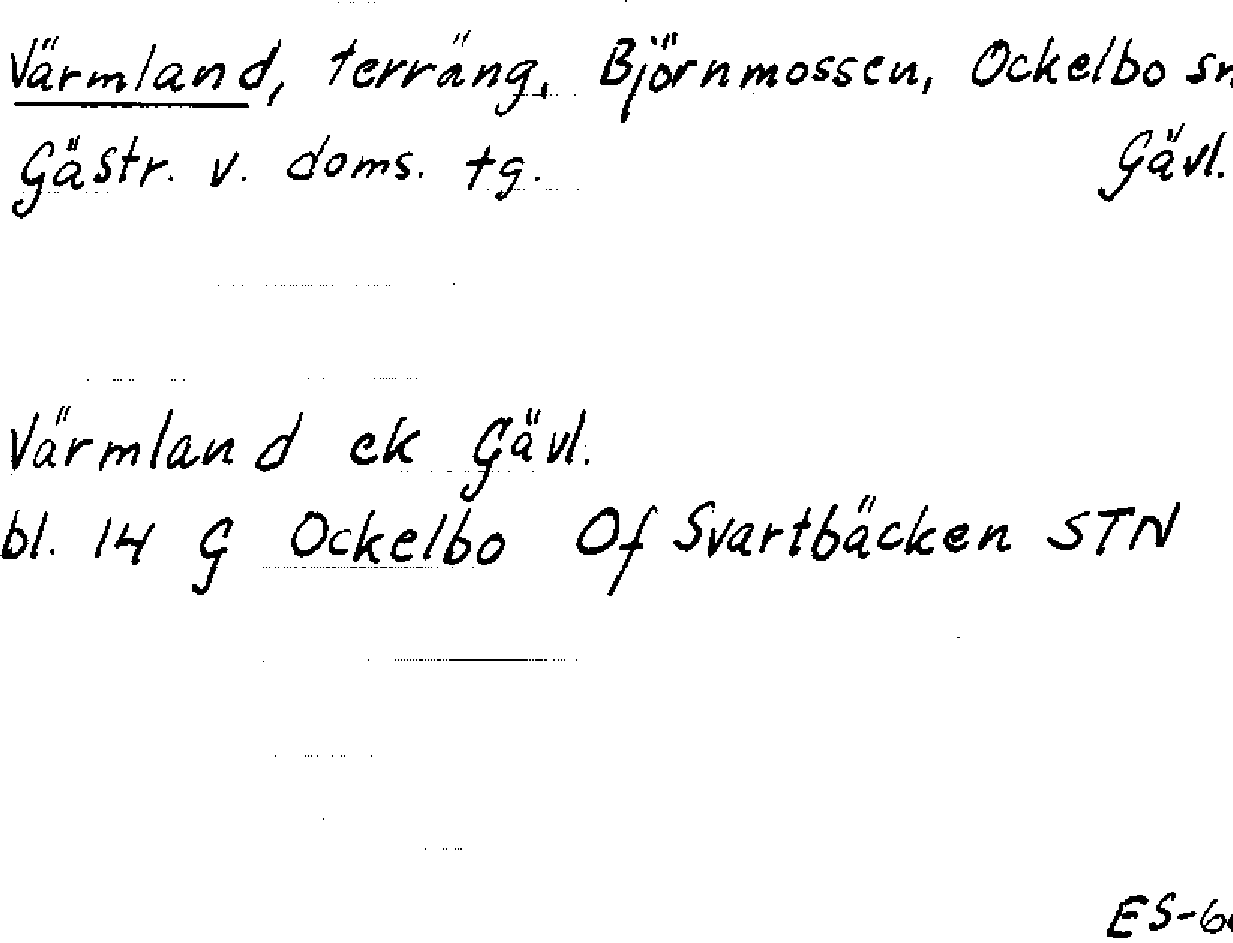 Värmland, terräng, Björnmossen, Ockelbo sn
Gästr. v. doms. tg. Gävl.
Värmland ek Gävl.
bl. 14 G Ockelbo Of Svartbäcken STN